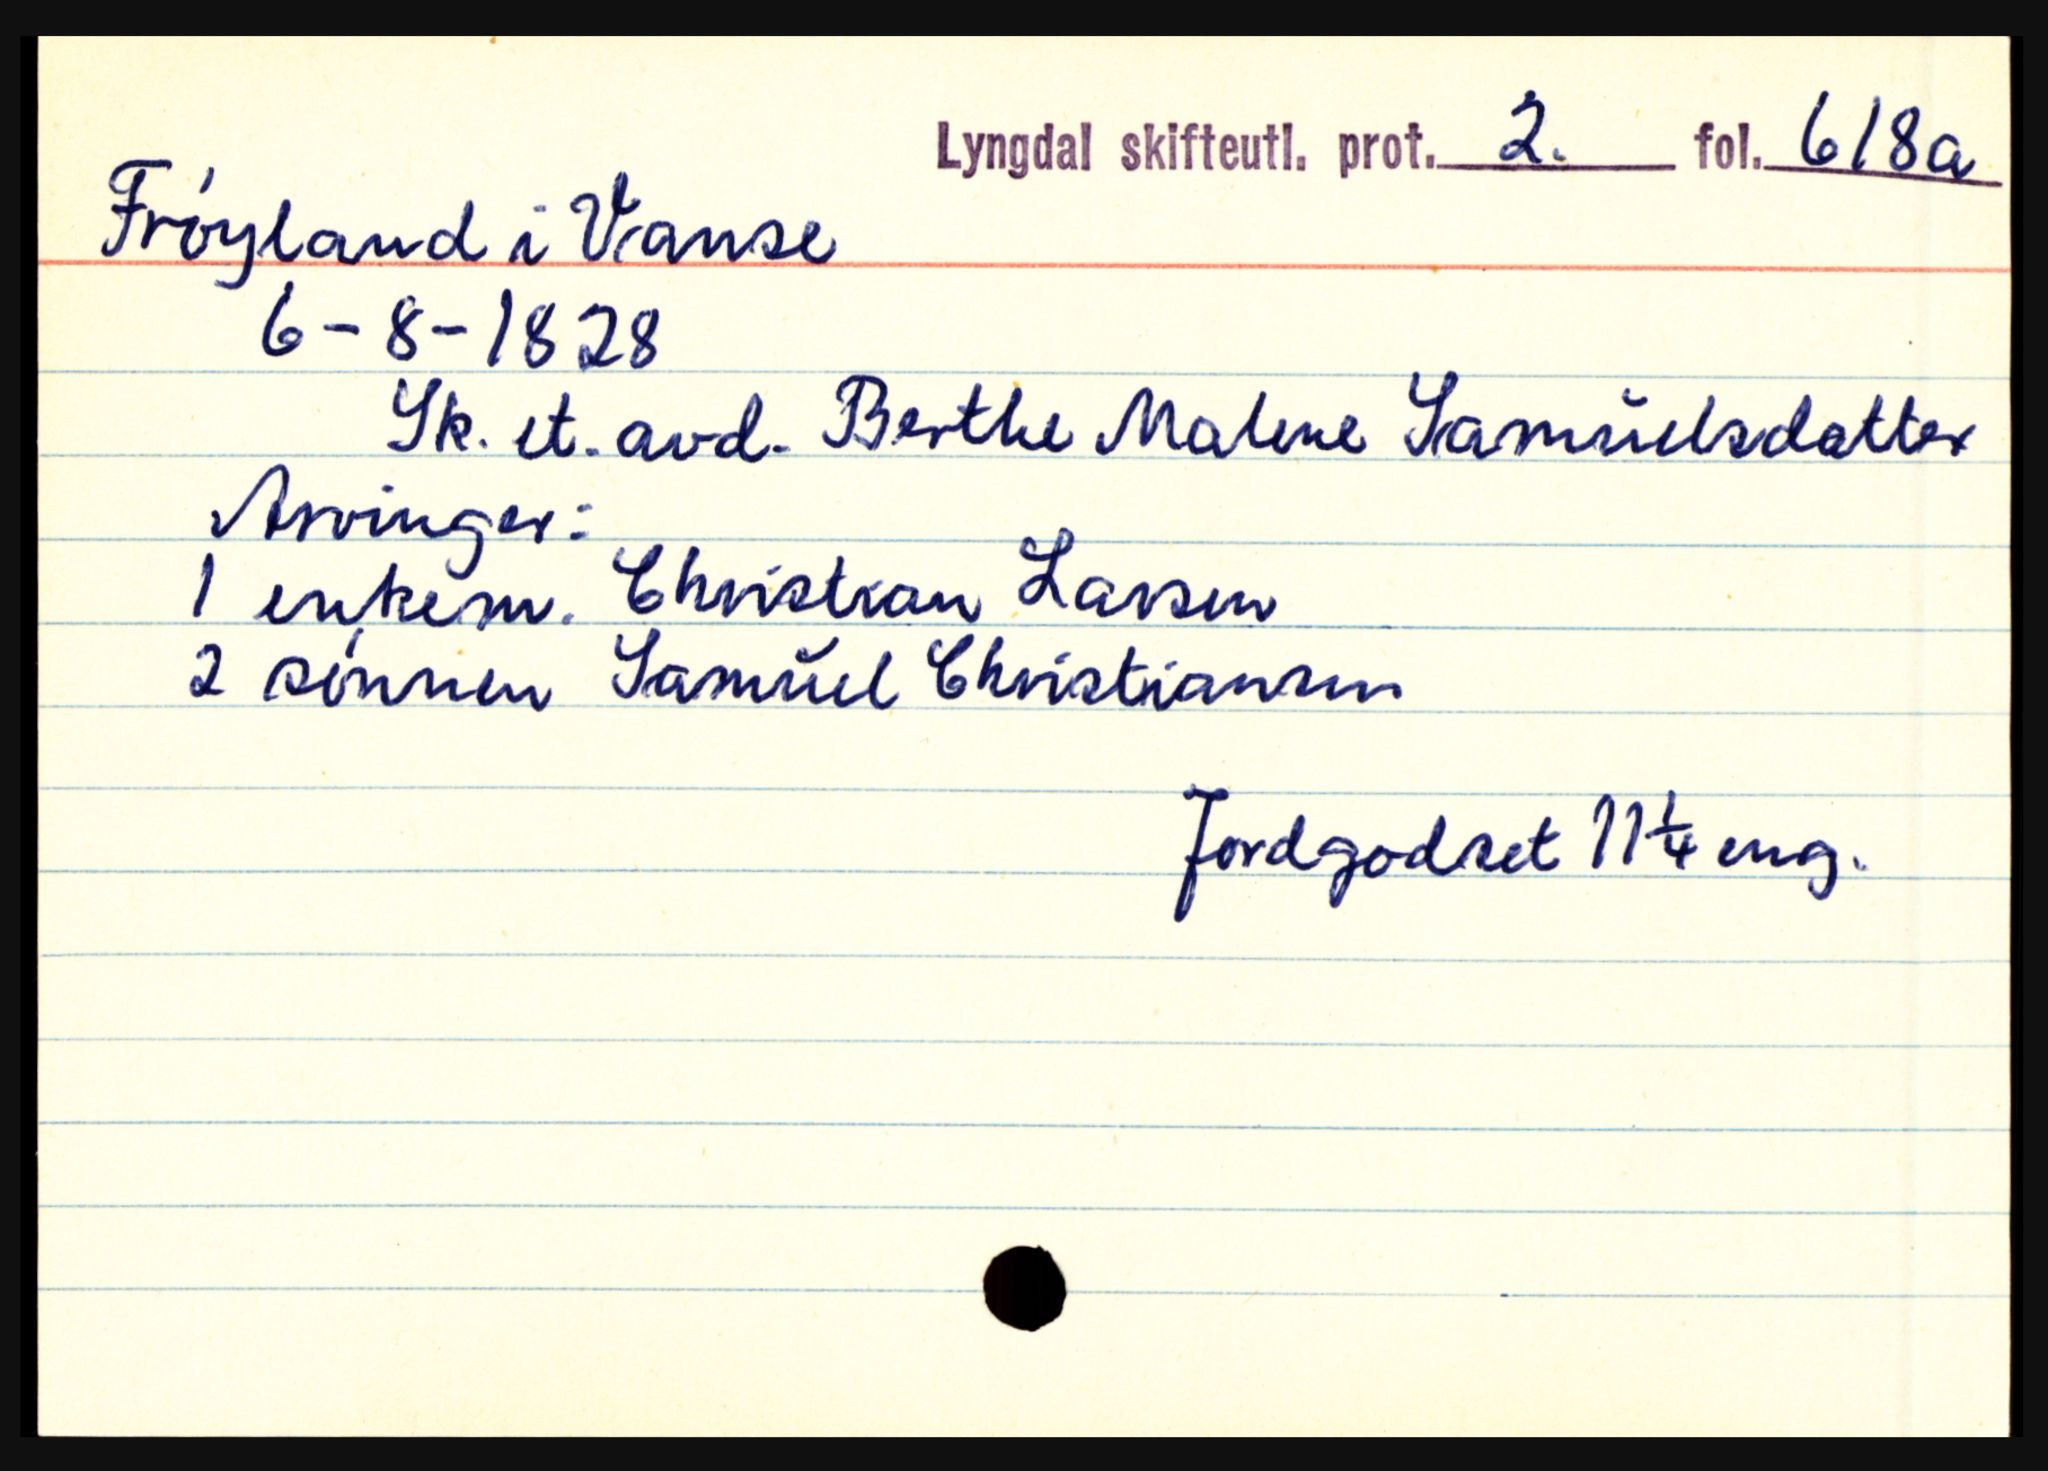 Lyngdal skifteutl. prot. 2. fol. 618a
Frøyland i Vanse
6-8-1828
Sk. et. avd. Berthe Malene Samŭelsdatter
Arvinger:
1 enkem. Christian Larsen
2 sønnen Samŭel Christiansen
Jordgodset 11 1/4 eng.